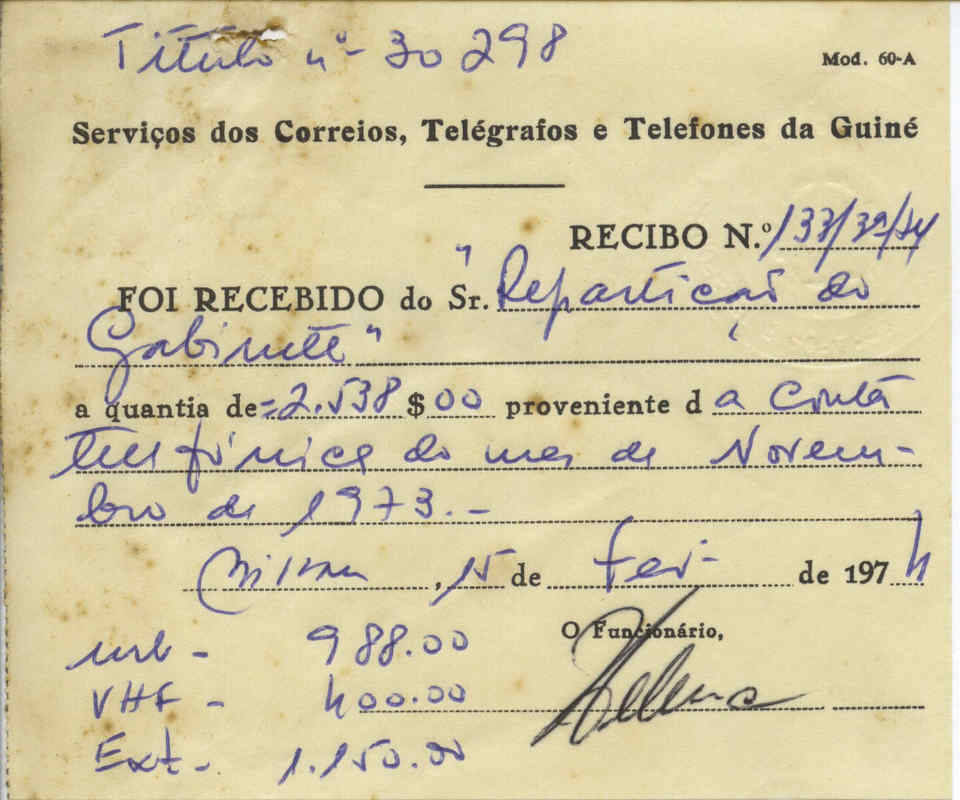 Titulo nº 30298
Mod. 60-A
Serviços dos Correios, Telégrafos e Telefones da Guiné
RECIBO N.º 133/39/74
FOI RECEBIDO do Sr. "Repartição do
Gabinete"
a quantia de =2.538 $ 00 proveniente d a conta
telefónica do mes de Novem-
bro de 1973.-
Bissau, 15 de Fev- de 1974
O Funcionário,
urb - 988.00
VHF - 400.00
Ext - 1.150.00